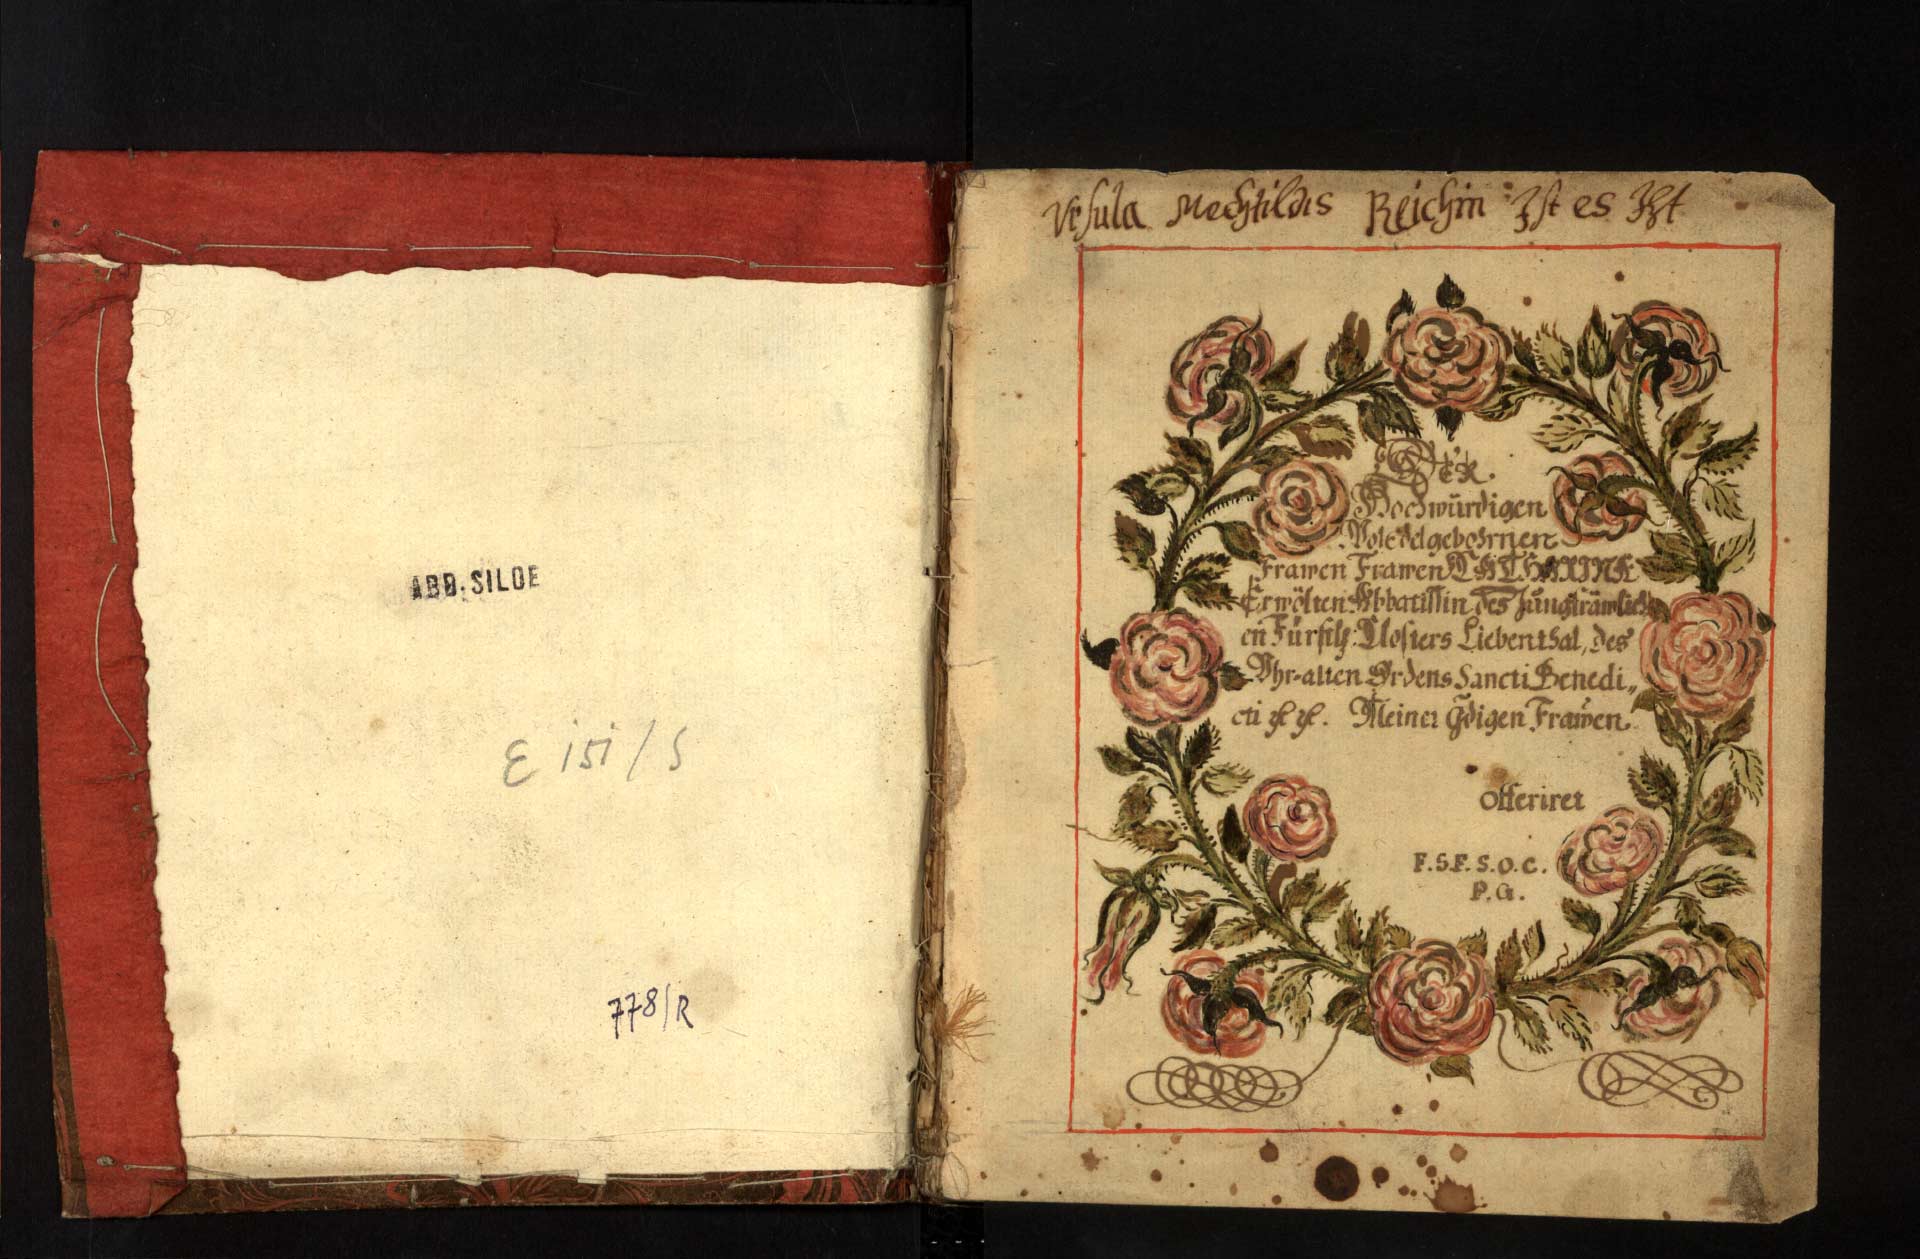 ABB. SILOE
E 151/5
778/R
Ursula Mechtildis Reichin Ist es Izt
Der
Hochwürdigen
Woledelgebohrnen
Frawen Frawen CATHARINAE
Erwölten Abbatissin des Jungfräwlich
en Fürstl: Closters Liebenthal, des
Uhr-alten Ordens Sancti Benedi„
cti ꝛc ꝛc. Meiner Gdigen Frawen
offeriret
F.S.F.S.O.C.
P.G.